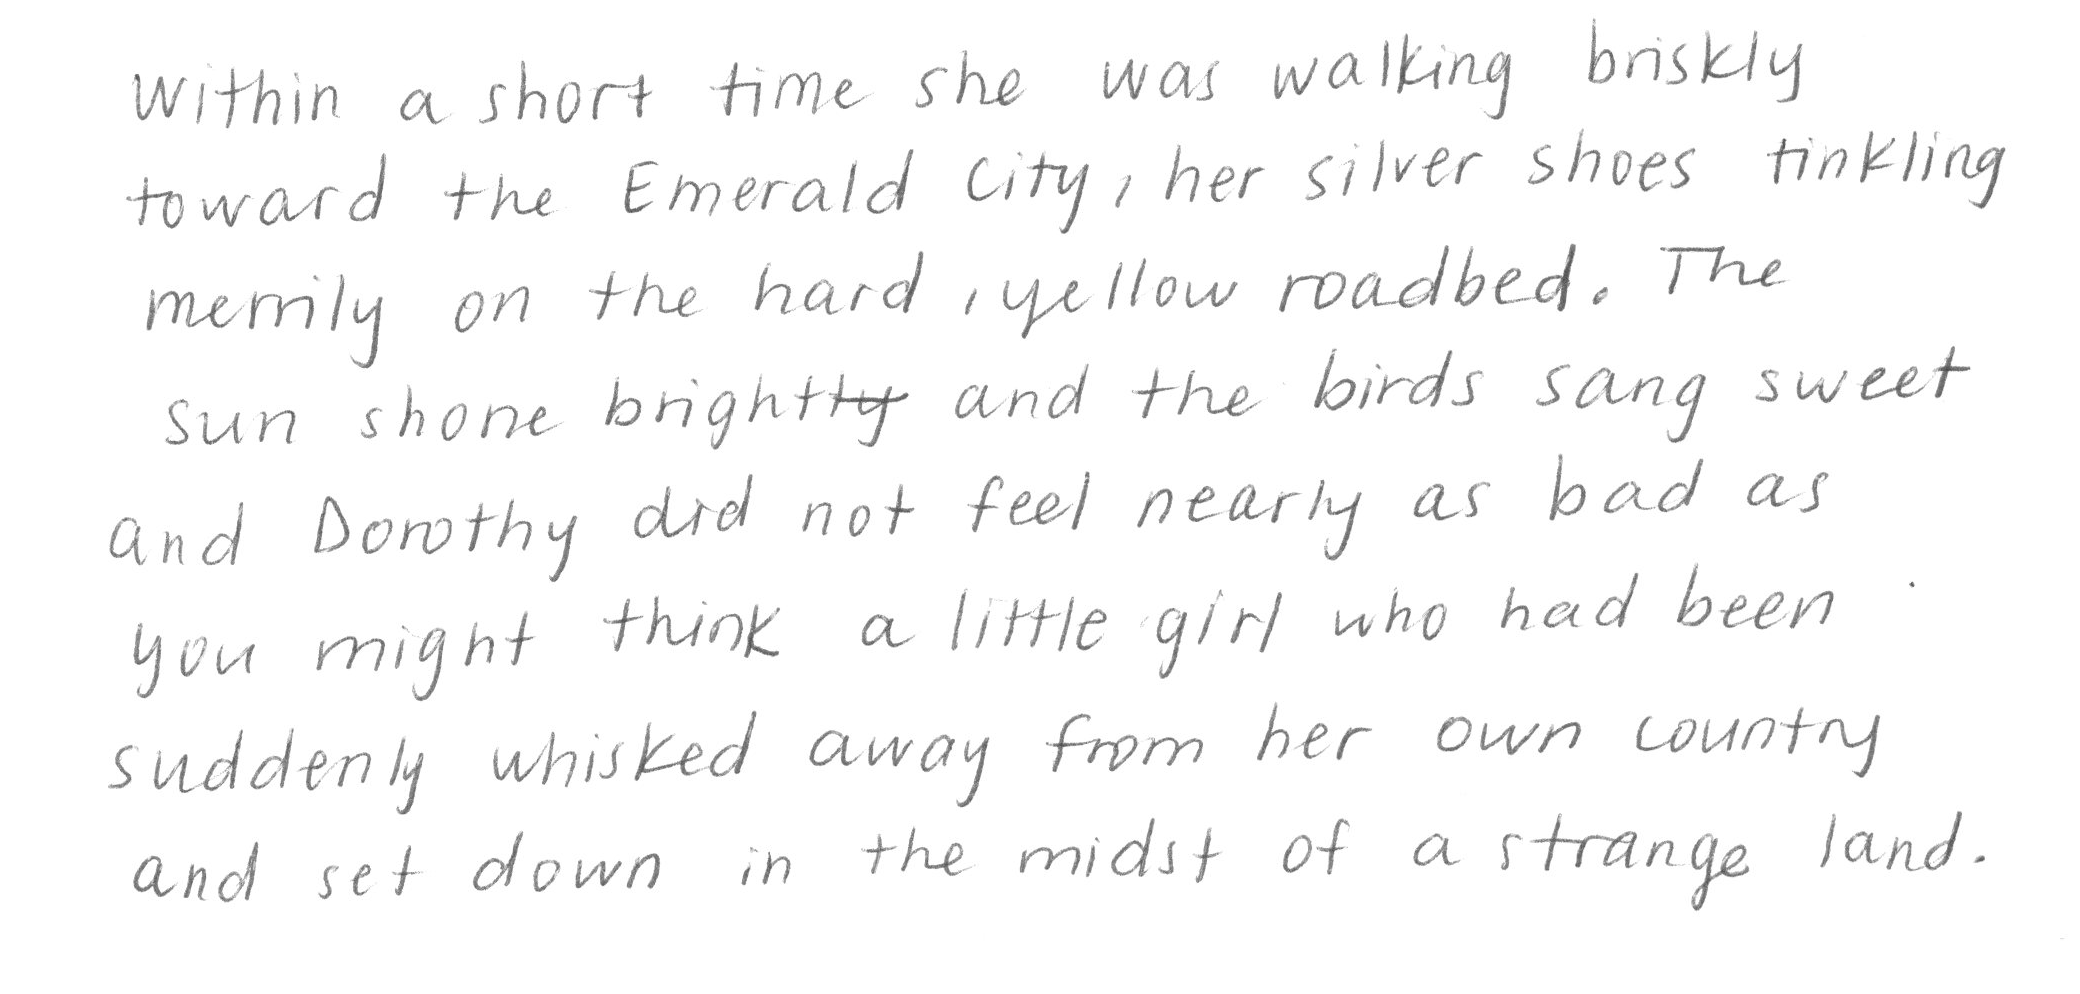 Within a short time she was walking briskly
toward the Emerald City, her silver shoes tinkling
merrily on the hard, yellow roadbed. The
sun shone bright and the birds sang sweet
and Dorothy did not feel nearly as bad as
you might think a little girl who had been
suddenly whisked away from her own country
and set down in the midst of a strange land.